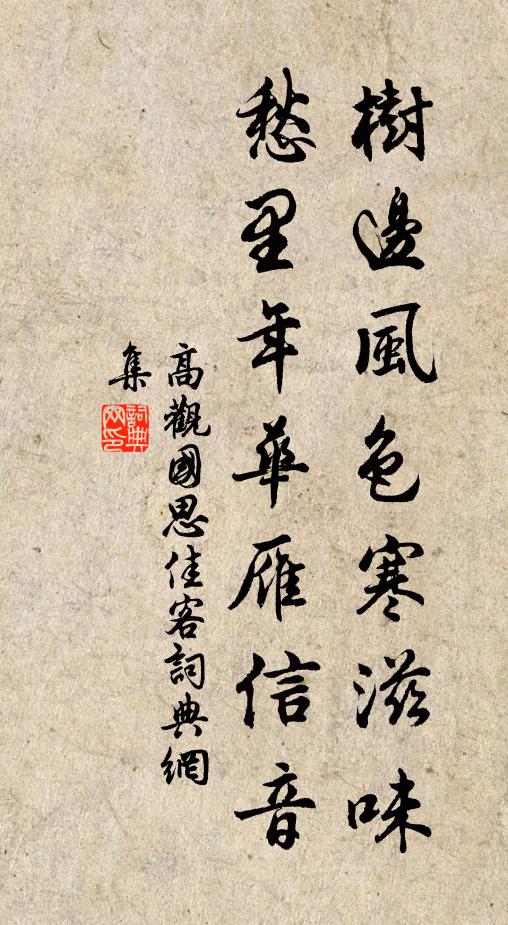 樹邊風色寒滋味
愁里年華雁信音
高觀國思佳客詞典網
集
詞典網印